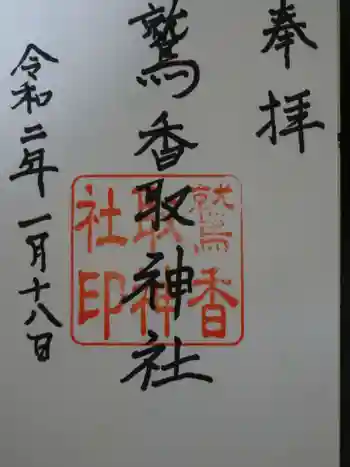 奉拝
鷲香取神社
令和二年一月十八日
鷲香
取神
社印